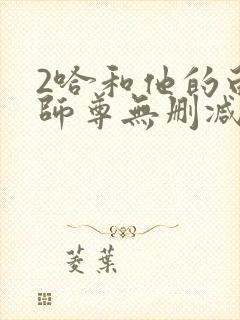 2哈和他的白
師尊無刪減
菱葉